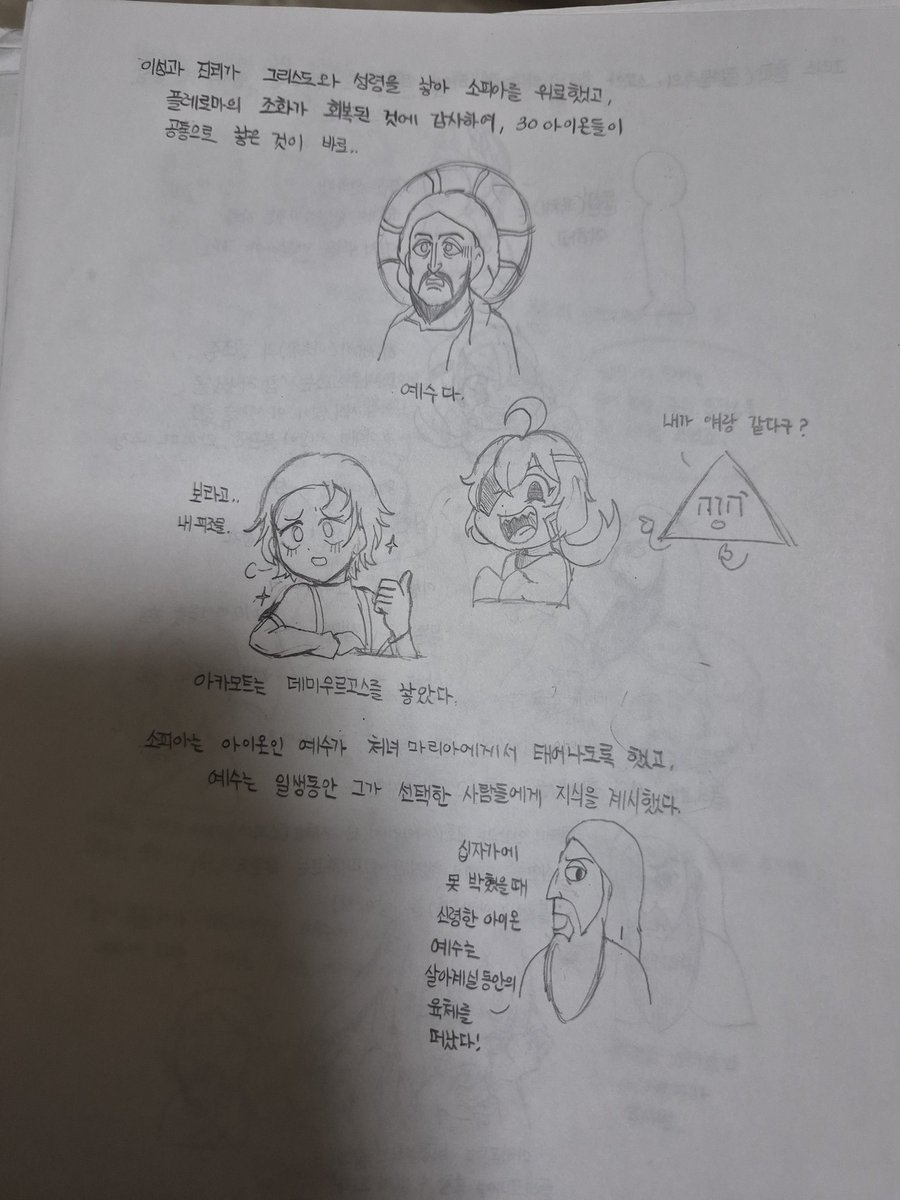 이성과 진리가 그리스도와 성령을 낳아 소피아를 위로했고,
플레로마의 조화가 회복된 것에 감사하여, 30 아이온들이
공통으로 낳은 것이 바로..
예수다.
내가 얘랑 같다구?
보라고..
내 피조물.
יהוה
아카모트는 데미우르고스를 낳았다.
소피아는 아이온인 예수가 처녀 마리아에게서 태어나도록 했고,
예수는 일생동안 그가 선택한 사람들에게 지식을 계시했다.
십자가에
못 박혔을때
신령한 아이온
예수는
살아계실동안의
육체를
떠났다!